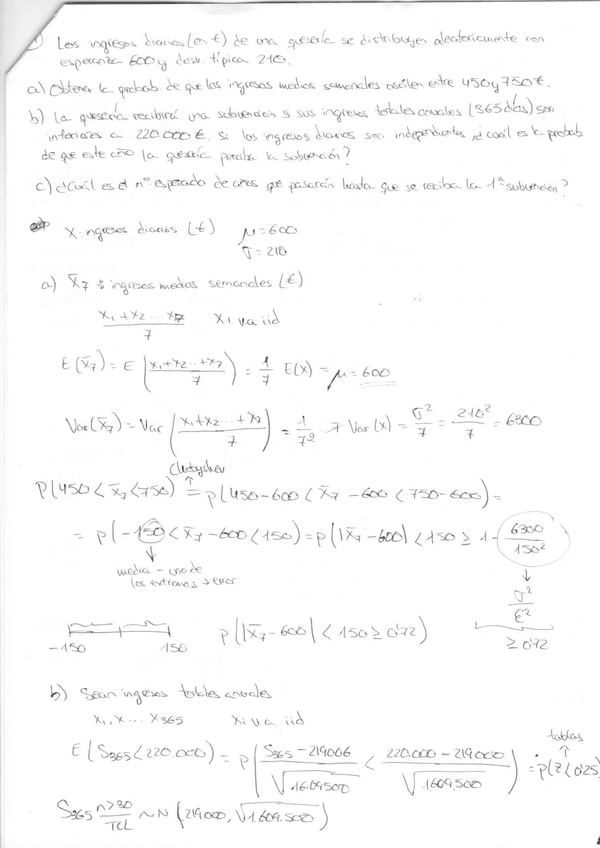 Los ingresos diarios (en €) de una quesería se distribuyen aleatoriamente con
esperanza 600 y desv. típica 210.
a) Obtener la probab. de que los ingresos medios semanales oscilen entre 450 y 750 €.
b) La quesería recibirá una subvención si sus ingresos totales anuales (365 días) son
inferiores a 220.000 €. Si los ingresos diarios son independientes, ¿cuál es la probab.
de que este año la quesería perciba la subvención?
c) ¿Cuál es el nº esperado de años que pasarán hasta que se reciba la 1ª subvención?
X: ingresos diarios (€) μ = 600
σ = 210
a) X̄7 : ingresos medios semanales (€)
(x1 + x2 ... x7)/7 Xi va iid
E(X̄7) = E((x1+x2...+x7)/7) = 1/7 E(x) = μ = 600
Var(X̄7) = Var((x1+x2...+x7)/7) = 1/7² 7 Var(x) = σ²/7 = 210²/7 = 6300
Chebyshev
P(450 < X̄7 < 750) = P(450-600 < X̄7 - 600 < 750-600) =
= P(-150 < X̄7 - 600 < 150) = P(|X̄7 - 600| < 150 ≥ 1 - 6300/150²
media - uno de
los extremos → error
σ²/ε²
≥ 0'72
-150 150 P(|X̄7 - 600| < 150 ≥ 0'72)
b) Sean ingresos totales anuales
X1, X ... X365 Xi va iid
tablas
E(S365 < 220.000) = P((S365 - 219006)/√16.09500 < (220.000 - 219.000)/√1609.500) = P(Z < 0'25)
S365 n>30/TCL ~ N(219000, √1609.500)